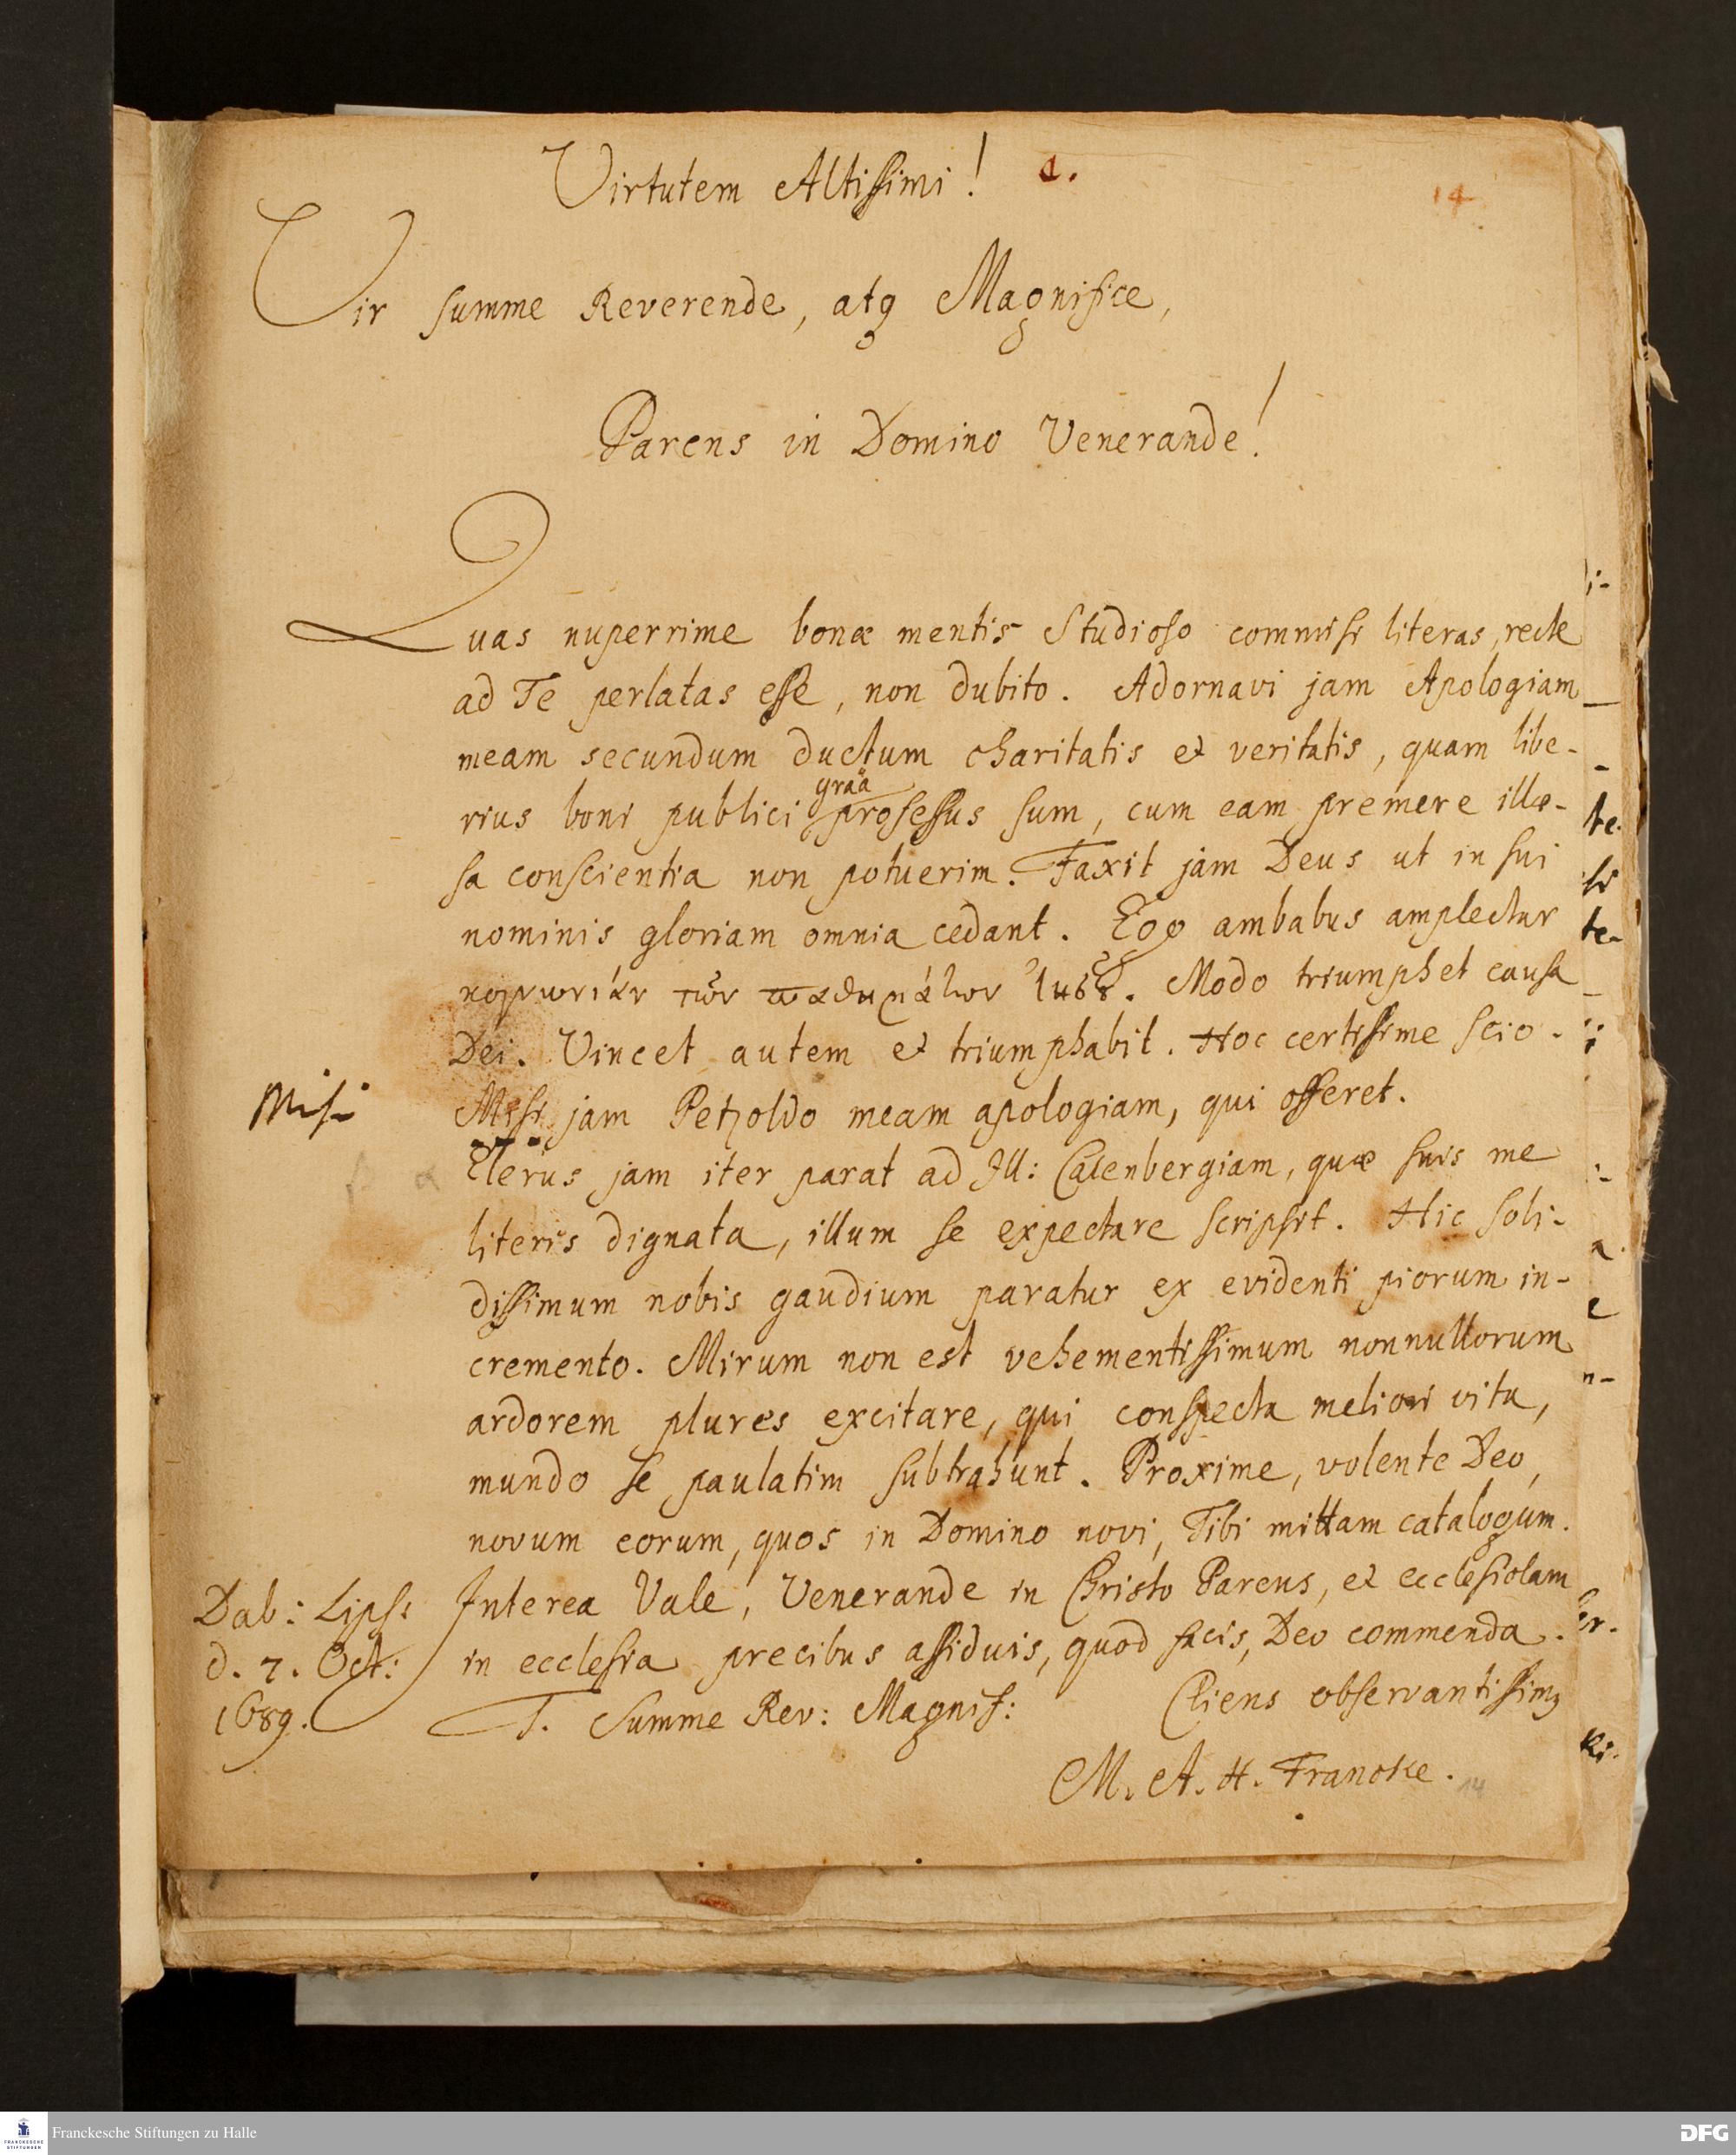 Virtutem Altissimi! 1.
14
Vir summe Reverende, atq Magnifice,
Parens in Domino Venerande!
Quas nuperrime bonæ mentis Studioso commisi literas, recte
ad Te perlatas esse, non dubito. Adornavi jam Apologiam
meam secundum ductum charitatis et veritatis, quam libe-
graa
rius boni publici professus sum, cum eam premere illæ-
sa conscientia non potuerim. Faxit jam Deus ut in sui
nominis gloriam omnia cedant. Ego ambabus amplectar
κοινωνίαν τῶν παθημάτων Ἰησοῦ. Modo triumphet causa
Dei. Vincet autem et triumphabit. Hoc certissime scio.
Misi
Misi jam Petzoldo meam apologiam, qui offeret.
Elerus jam iter parat ad Ill: Calenbergiam, quæ suis me
literis dignata, illum se expectare scripsit. Hic soli-
dissimum nobis gaudium paratur ex evidenti piorum in-
cremento. Mirum non est vehementissimum nonnullorum
ardorem plures excitare, qui conspecta meliori vita,
mundo se paulatim subtrahunt. Proxime, volente Deo,
novum eorum, quos in Domino novi, Tibi mittam catalogum.
Interea Vale, Venerande in Christo Parens, et ecclesiolam
in ecclesia precibus assiduis, quod facis, Deo commenda.
Dab: Lips:
d. 7. Oct:
1689.
T. Summe Rev: Magnif:
Cliens observantissimꝰ
M. A. H. Francke.
14
li-
te.
te-
a
e
n-
er.
ki.
Franckesche Stiftungen zu Halle
FRANCKESCHE STIFTUNGEN
DFG